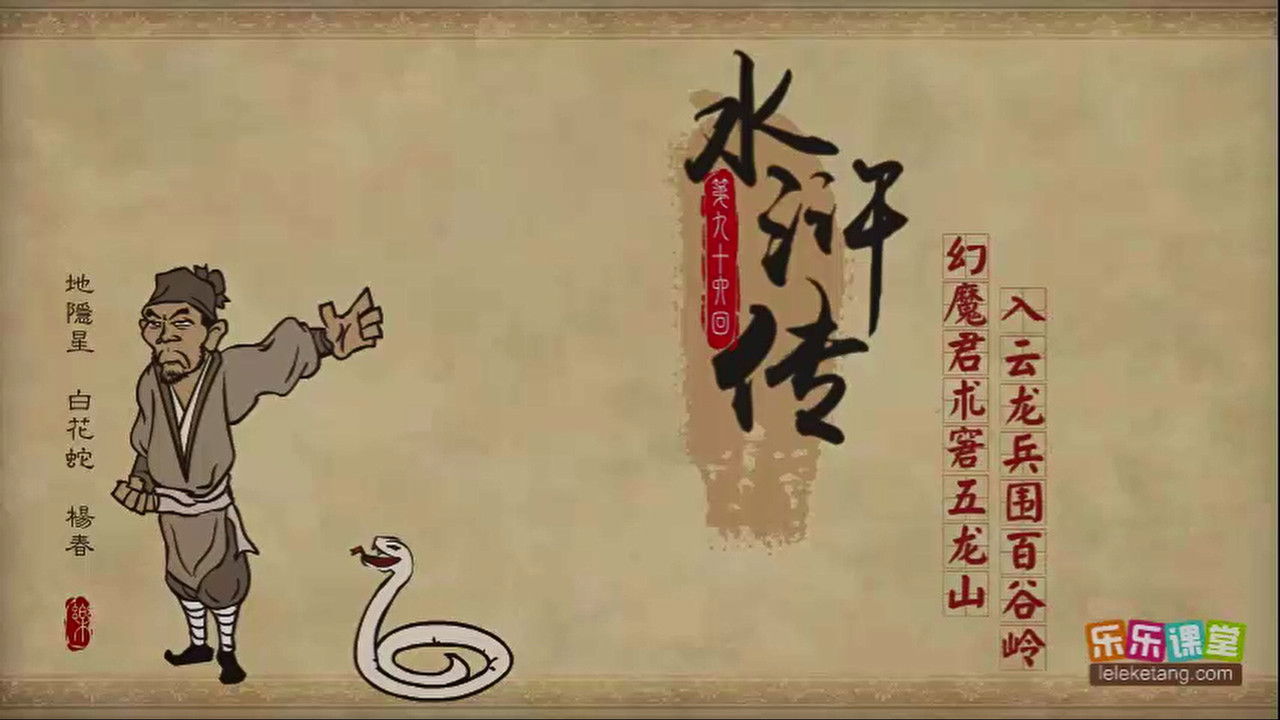 水浒传
第九十四回
幻魔君术窘五龙山
入云龙兵围百谷岭
地隱星 白花蛇 楊春
樂
乐乐课堂
leleketang.com